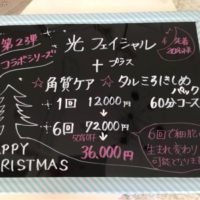 第2弾
コラボシリーズ
光フェイシャル
+プラス
☆角質ケア ☆タルミ引きしめ
パック
1回 12,000円 60分コース
6回 72,000円
50%OFF
36,000円
6回で細胞の
生まれ変わり
可能となります
HAPPY
CHRISTMAS